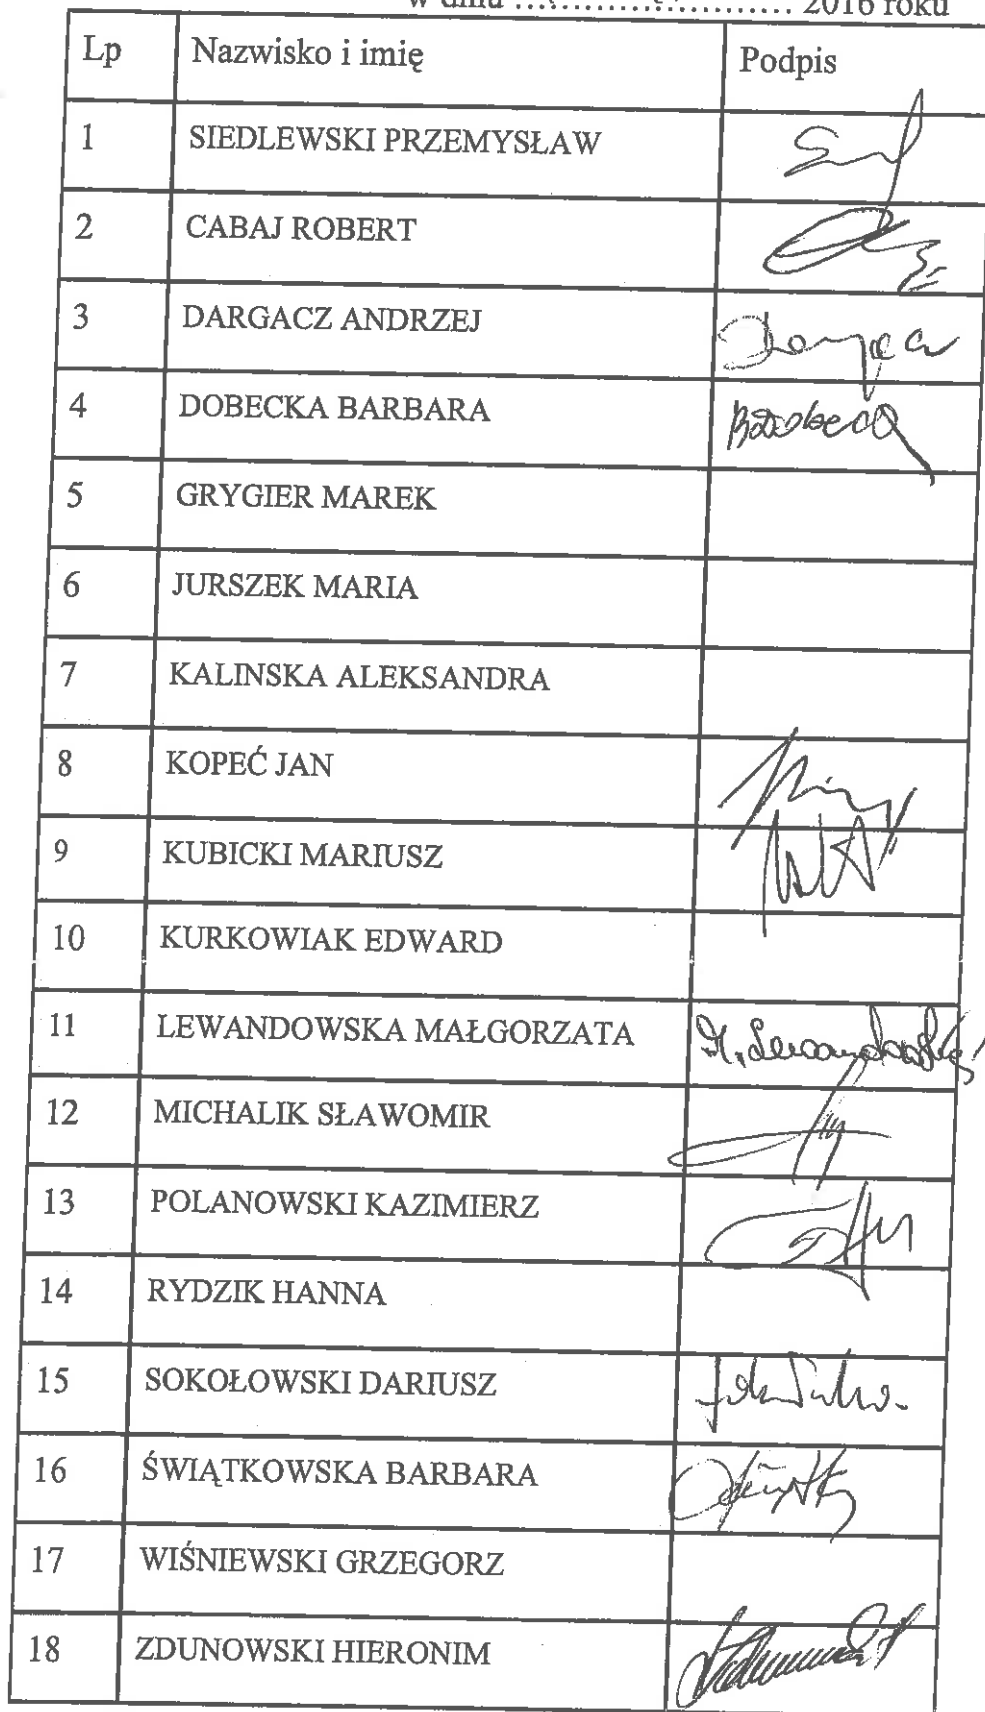 w dniu ........................... 2016 roku
Lp Nazwisko i imię Podpis
1 SIEDLEWSKI PRZEMYSŁAW
2 CABAJ ROBERT
3 DARGACZ ANDRZEJ
4 DOBECKA BARBARA
5 GRYGIER MAREK
6 JURSZEK MARIA
7 KALINSKA ALEKSANDRA
8 KOPEĆ JAN
9 KUBICKI MARIUSZ
10 KURKOWIAK EDWARD
11 LEWANDOWSKA MAŁGORZATA M. Lewandowska
12 MICHALIK SŁAWOMIR
13 POLANOWSKI KAZIMIERZ
14 RYDZIK HANNA
15 SOKOŁOWSKI DARIUSZ
16 ŚWIĄTKOWSKA BARBARA
17 WIŚNIEWSKI GRZEGORZ
18 ZDUNOWSKI HIERONIM